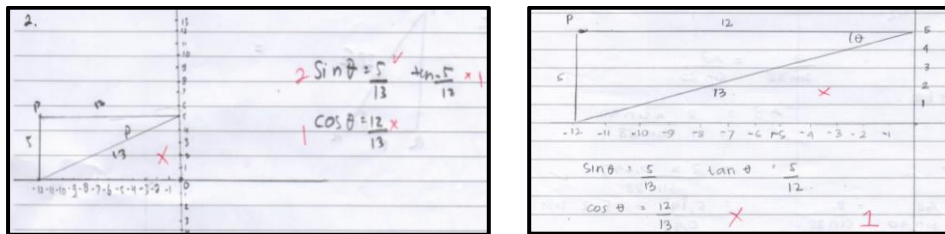 2.
13
12
11
10
9
8
7
6
5
4
3
2
1
P
5
P
13
-12 -11 -10 -9 -8 -7 -6 -5 -4 -3 -2 -1 0
2 Sin θ = 5/13 tan = 5/13 × 1
1 cos θ = 12/13 ×
×
P 12
θ
5
4
3
2
1
5
13
×
-12 -11 -10 -9 -8 -7 -6 -5 -4 -3 -2 -1
sin θ = 5/13 tan θ = 5/12
cos θ = 12/13 × 1